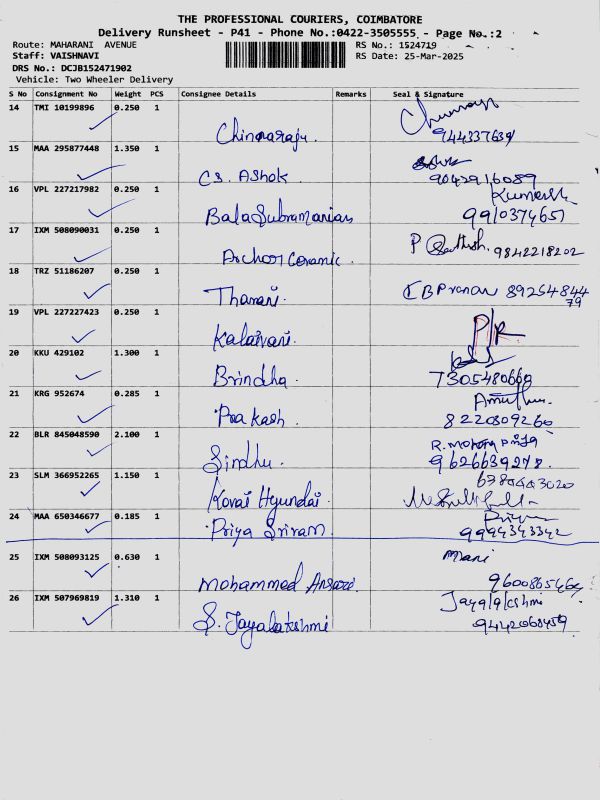 THE PROFESSIONAL COURIERS, COIMBATORE
Delivery Runsheet - P41 - Phone No.:0422-3505555 - Page No.:2
Route: MAHARANI AVENUE
RS No.: 1524719
Staff: VAISHNAVI
RS Date: 25-Mar-2025
DRS No.: DCJB152471902
Vehicle: Two Wheeler Delivery
S No Consignment No Weight PCS Consignee Details Remarks Seal & Signature
14 TMI 10199896 0.250 1
Chinnaraju.
15 MAA 295877448 1.350 1
CS. Ashok 9042916089
16 VPL 227217982 0.250 1 Kumaresh
BalaSubramanian 9910374651
17 IXM 508090031 0.250 1
Archor Ceramic. P Sathish. 9842218202
18 TRZ 51186207 0.250 1
Tharani.
19 VPL 227227423 0.250 1 P/R
Kalaivani.
20 KKU 429102 1.300 1
Brindha 7305480668
21 KRG 952674 0.285 1
Prakash. 8220809260
22 BLR 845048590 2.100 1
Sindhu. 9626639278.
23 SLM 366952265 1.150 1
Kovai Hyundai.
24 MAA 650346677 0.185 1 Priya
Priya Sriram. 9994343342
25 IXM 508093125 0.630 1 Mani
Mohammed Ansari.
26 IXM 507969819 1.310 1 Jayalakshmi
S. Jayalakshmi 9442068459